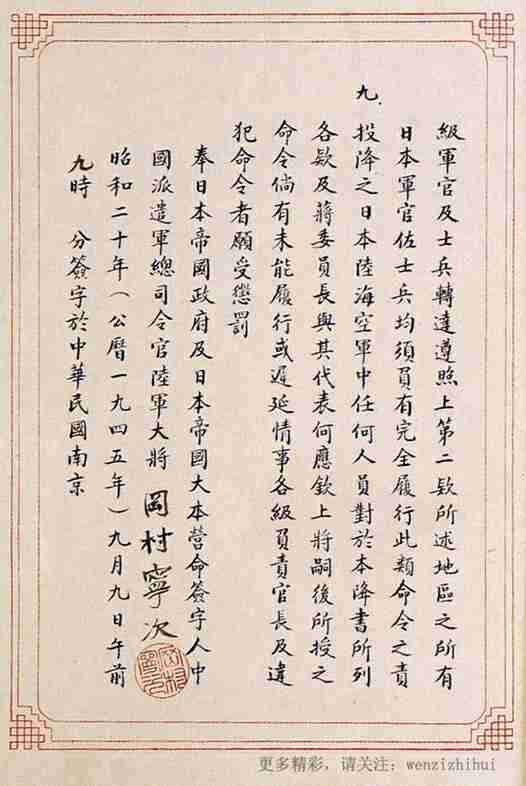 級軍官及士兵轉達遵照上第二欵所述地區之所有
日本軍官佐士兵均須負有完全履行此類命令之責
九.投降之日本陸海空軍中任何人員對於本降書所列
各欵及蔣委員長與其代表何應欽上將嗣後所授之
命令倘有未能履行或遲延情事各級負責官長及違
犯命令者願受懲罰
奉日本帝國政府及日本帝國大本營命簽字人中
國派遣軍總司令官陸軍大將 岡村寧次
昭和二十年(公曆一九四五年)九月九日午前
九時 分簽字於中華民國南京
更多精彩，请关注：wenzizhihui